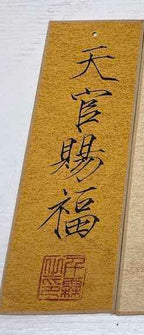 天官賜福